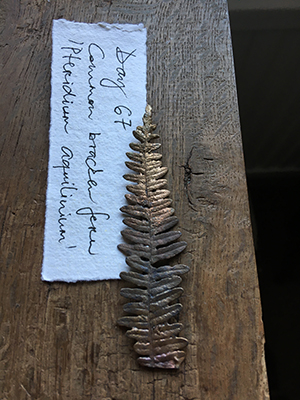 Day 67
Common bracken fern
'Pteridium aquilinium'